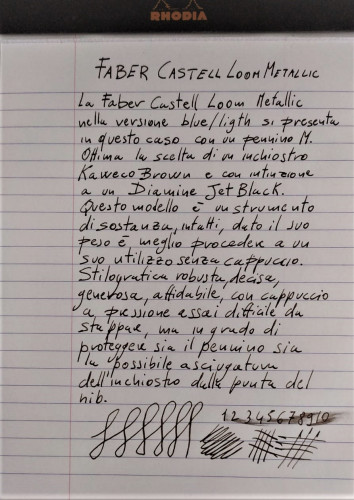 RHODIA
FABER CASTELL LOOM METALLIC
La Faber Castell Loom Metallic
nella versione blue/ligth si presenta
in questo caso con un pennino M.
Ottima la scelta di un inchiostro
Kaweco Brown e con intinzione
a un Diamine Jet Black.
Questo modello è uno strumento
di sostanza, infatti, dato il suo
peso è meglio procedere a un
suo utilizzo senza cappuccio.
Stilografica robusta, decisa,
generosa, affidabile, con cappuccio
a pressione assai difficile da
stappare, ma in grado di
proteggere sia il pennino sia
la possibile asciugatura
dell'inchiostro dalla punta del
nib.
12345678910